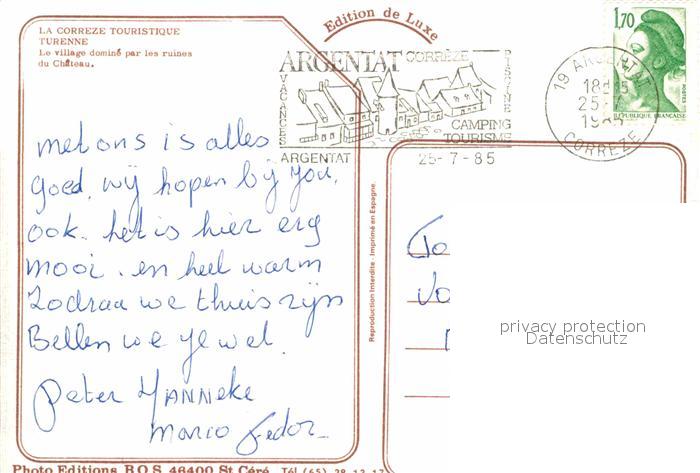 LA CORREZE TOURISTIQUE
TURENNE
Le village dominé par les ruines
du Château.
Edition de Luxe
ARGENTAT CORRÈZE
VACANCES
PISCINE
CAMPING
TOURISME
ARGENTAT
25-7-85
19 ARGENTAT
18
25-7
19
CORREZE
1,70
POSTES
REPUBLIQUE FRANCAISE
met ons is alles
goed. wij hopen bij jou.
ook. het is hier erg
mooi. en heel warm
Zodraa we thuis zijn
Bellen we je wel.
Peter YANNEKE
Marco Fedor
Reproduction Interdite - Imprimé en Espagne.
privacy protection
Datenschutz
Photo Editions R.O.S. 46400 St Céré. Tél (65) 38.12.17